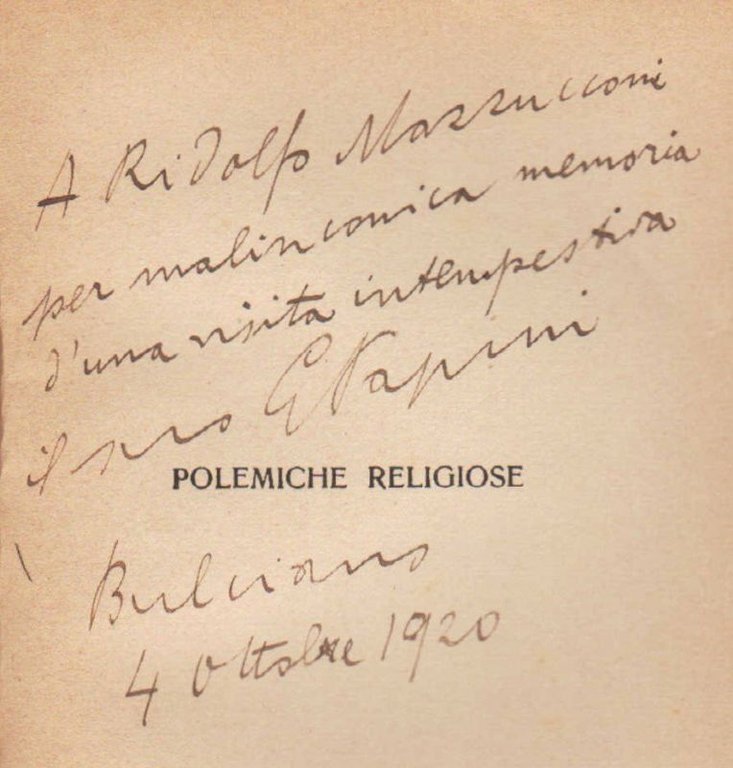 A Ridolfo Mazzucconi
per malinconica memoria
d'una visita intempestiva
il suo GPapini
POLEMICHE RELIGIOSE
Bulciano
4 Ottobre 1920